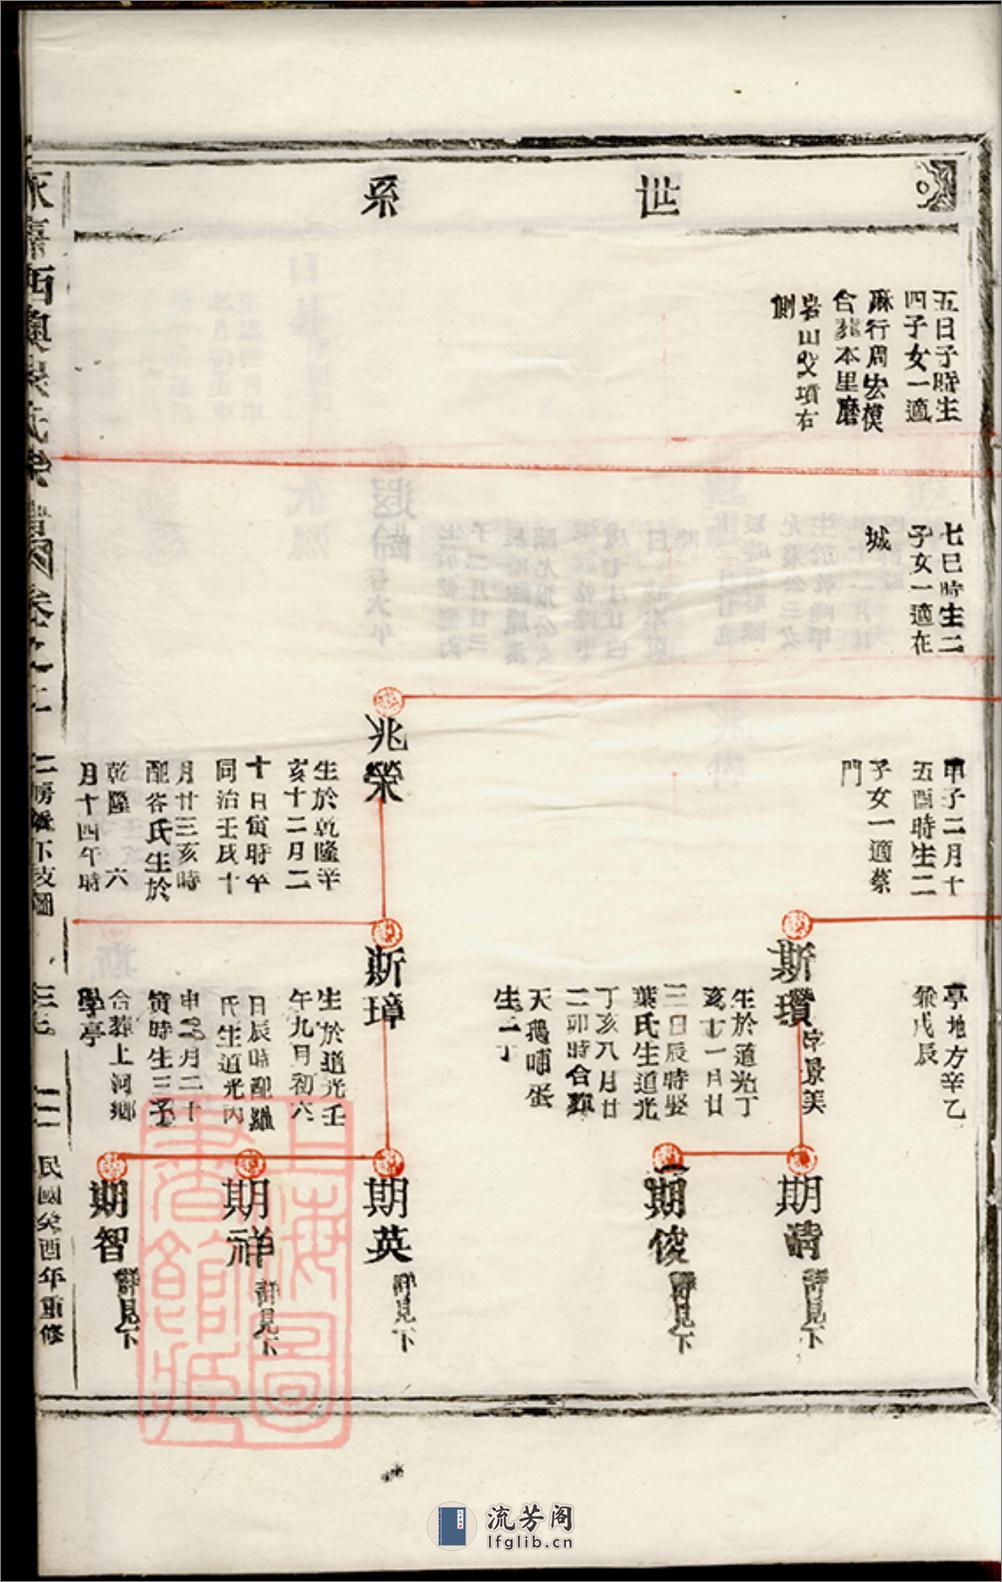 世系
五日子時生
四子女一適
麻行周宏模
合葬本里磨
岩山父墳右
側
七巳時生二
子女一適在
城
甲子二月十
五酉時生二
子女一適蔡
門
兆榮
生於乾隆辛
亥十二月二
十日寅時卒
同治壬戌十
月廿三亥時
配谷氏生於
乾隆 六
月十四午時
亭地方辛乙
兼戊辰
斯瓚 字景美
生於道光丁
亥十一月廿
三日辰時娶
葉氏生道光
丁亥八月廿
二卯時合葬
天鵝哺蛋
生二丁
斯璋
生於道光壬
午九月初六
日辰時配
氏生道光丙
申 月二十
寅時生三子
合葬上河鄉
學亭
期清 詳見下
期俊 詳見下
期英 詳見下
期祥 詳見下
期智 詳見下
永嘉西奧 氏宗譜 卷之
二房 下支圖
民國癸酉年重修
上海圖書館藏
流芳阁
lfglib.cn